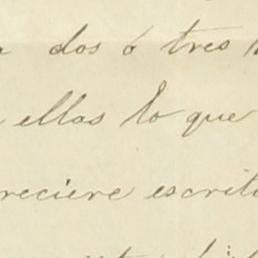 dos ó tres
ellas lo que
reciere escrito